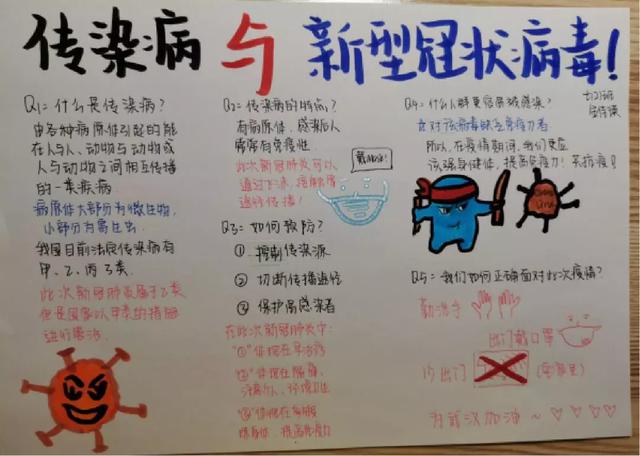 传染病与新型冠状病毒!
Q1: 什么是传染病?
由各种病原体引起的能
在人与人、动物与动物或
人与动物之间相互传播
的一类疾病
病原体大部分为微生物,
小部分为寄生虫
我国目前法定传染病有
甲、乙、丙3类
此次新冠肺炎属于乙类
但是国家以甲类的措施
进行防治
Q2: 传染病的特点?
有病原体,感染后人
常常有免疫性
此次新冠肺炎可以
通过飞沫、接触等
途径传播!
Q3: 如何预防?
① 控制传染源
② 切断传播途径
③ 保护易感染者
在此次新冠肺炎中:
"①"体现在早治疗
"②"体现在隔离,
注意个人、环境卫生
"③"体现在多锻
炼身体,提高免疫力
Q4: 什么人群更容易被感染?
是对该病毒缺乏免疫力者
所以,在疫情期间,我们更应
该强身健体,提高免疫力!
Q5: 我们如何正确面对此次疫情?
勤洗手
出门戴口罩
少出门
为武汉加油~